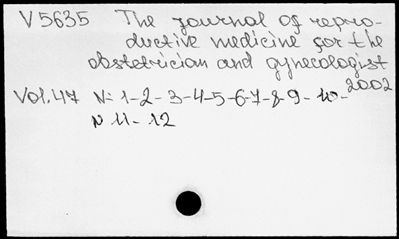 V5635 The journal of repro-
ductive medicine for the
obstetrician and gynecologist
2002
Vol.47 N: 1-2-3-4-5-6-7-8-9-10-
N 11-12